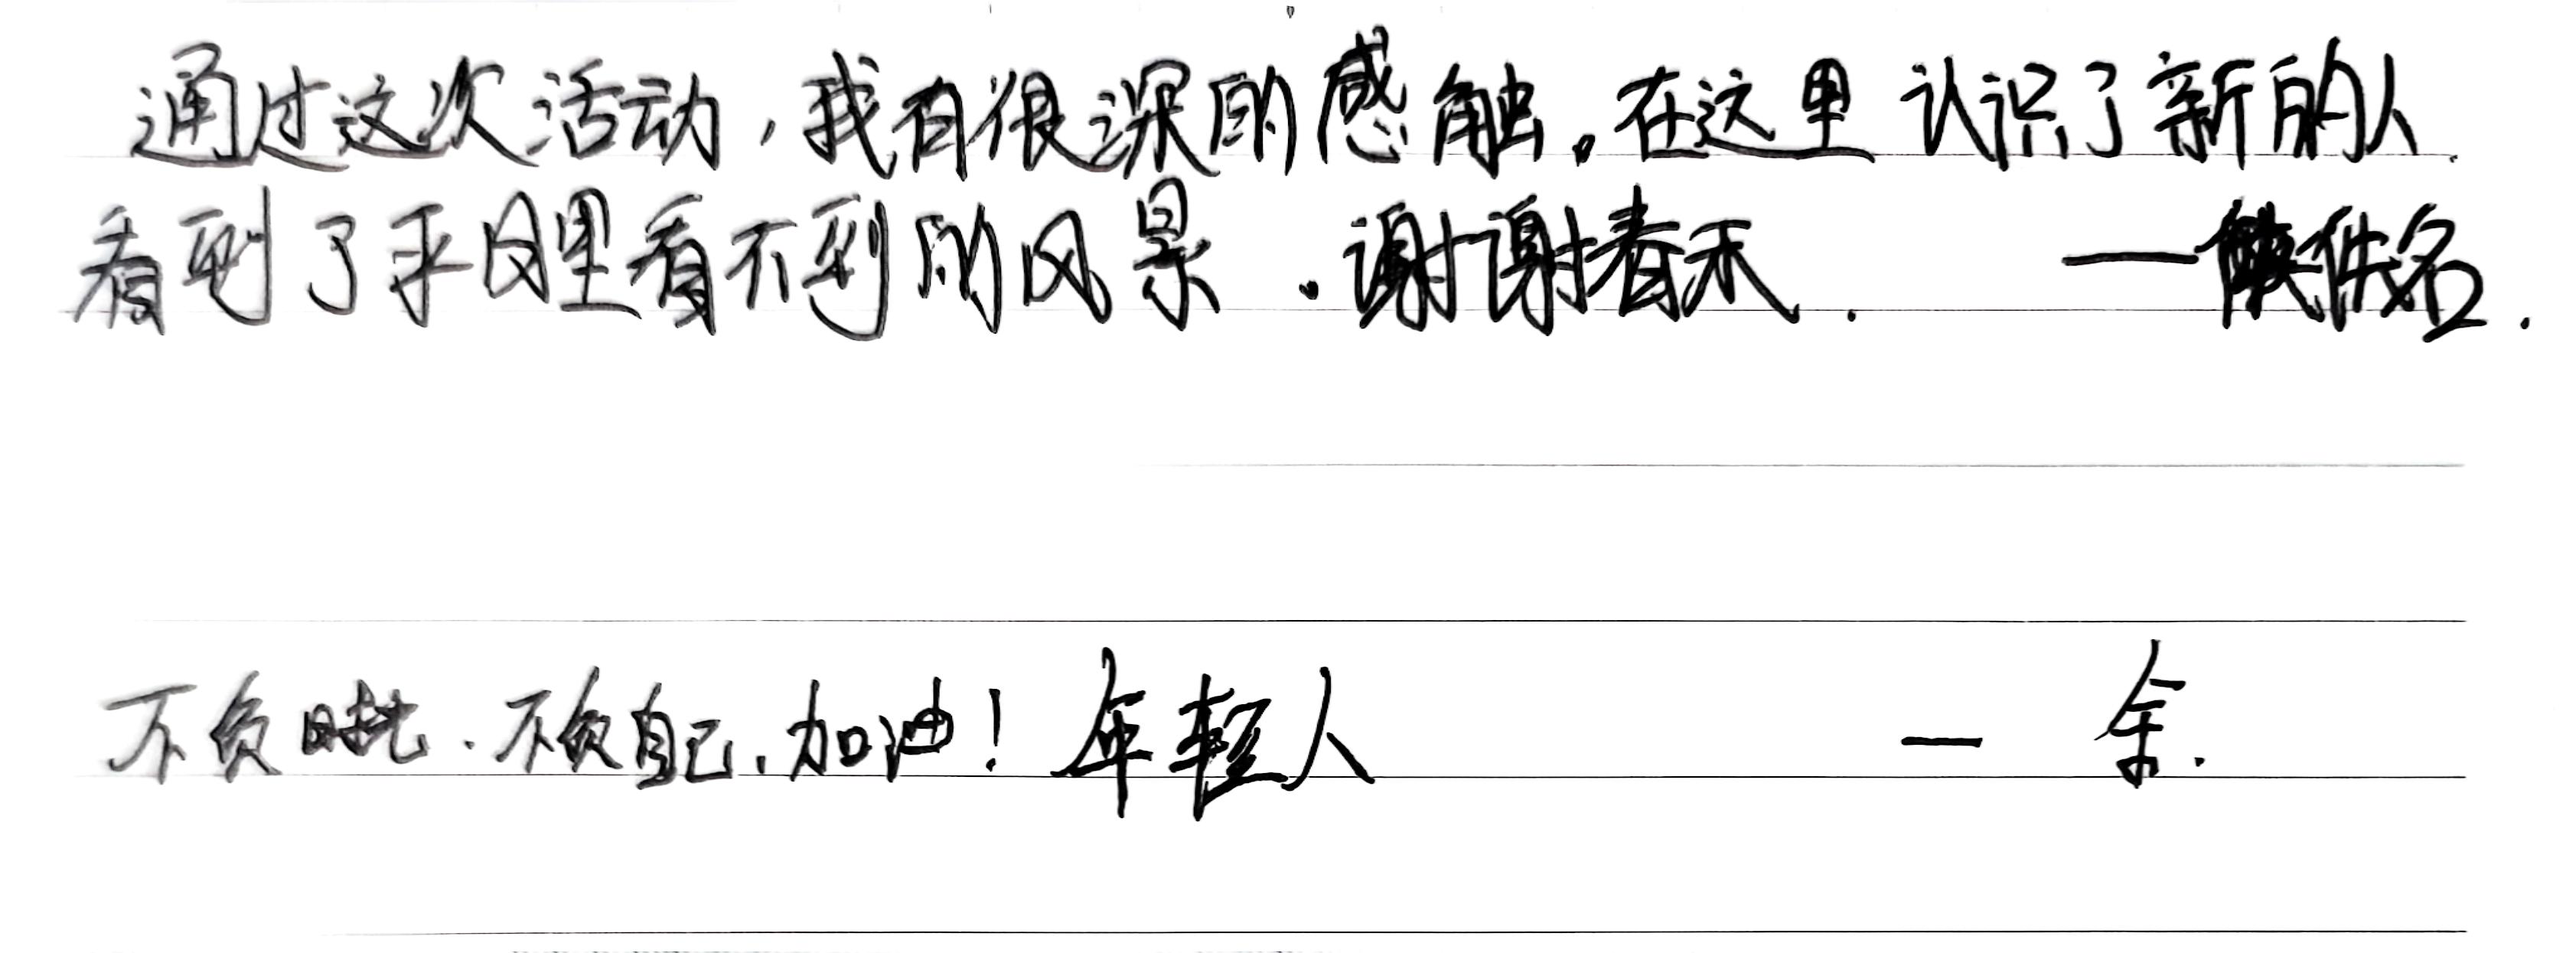 通过这次活动，我有很深的感触。在这里 认识了新的人.
看到了平日里看不到的风景.谢谢春禾. —佚名.
不负时光.不负自己.加油！年轻人 — 余.